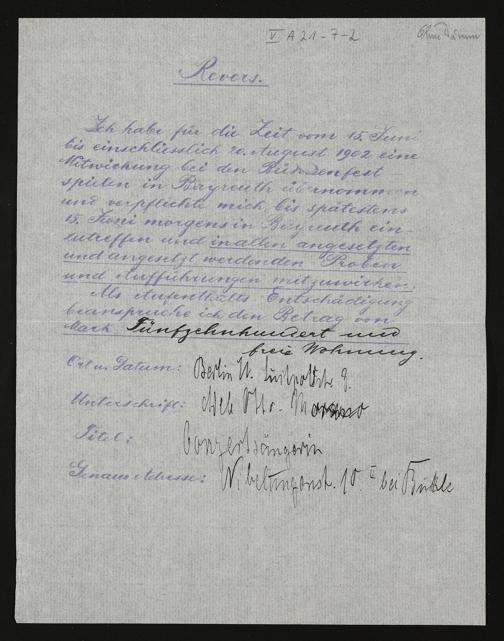 V A 21-7-2
Ohne Datum
Revers.
Ich habe für die Zeit vom 15. Juni
bis einschliesslich 20. August 1902 eine
Mitwirkung bei den Bühnenfest-
spielen in Bayreuth übernommen
und verpflichte mich bis spätestens
15. Juni morgens in Bayreuth ein-
zutreffen und in allen angesetzten
und angesetzt werdenden Proben
und Aufführungen mitzuwirken;
Als Aufenthalts-Entschädigung
beanspruche ich den Betrag von
Mark Fünfzehnhundert und
freie Wohnung.
Ort u. Datum: Berlin W. Luitpoldstr
Unterschrift: Otto-Morano
Titel: Conzertsängerin
Genaue Adresse: Nibelungenstr. 10 I bei